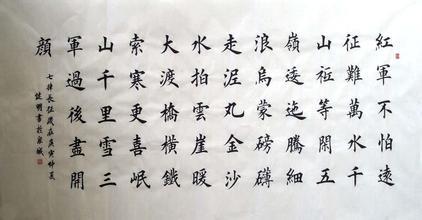 紅軍不怕遠
征難萬水千
山祗等閒五
嶺逶迤騰細
浪烏蒙磅礴
走泥丸金沙
水拍雲崖暖
大渡橋橫鐵
索寒更喜岷
山千里雪三
軍過後盡開
顏
七律長征歲在庚寅仲夏
健明書於泉城